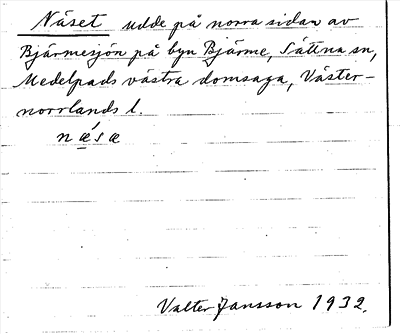 Näset udde på norra sidan av
Bjärmesjön på byn Bjärme, Sättna sn,
Medelpads västra domsaga, Väster-
norrlands l.
næ´sæ
Valter Jansson 1932.